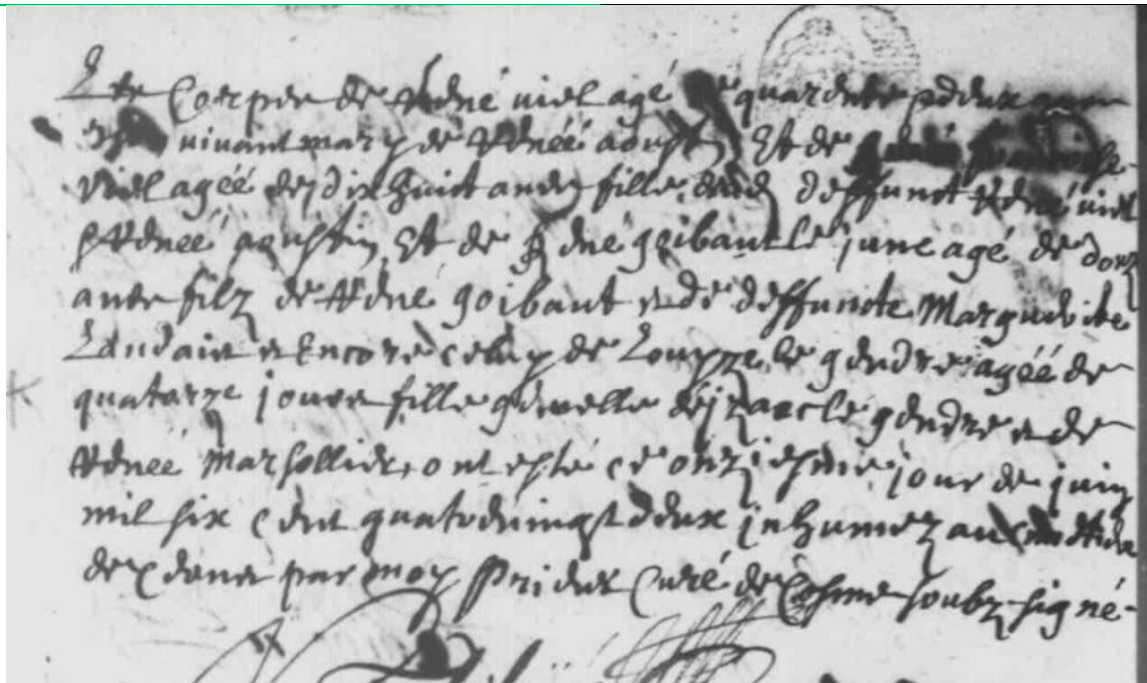 Les Corps de René viel agé de quarente et deux ans
vivant mary de Renéé agustin Et de
viel agéé de dixhuict ans fille deffunct René viel
et Renéé agustin Et de René goibaut le june agé de
ans filz de René goibaut et de deffuncte Marguerite
Landais et Encore celuy de Louyze le gendre agéé de
quatorze jours fille gemelle de jzaac le gendre et de
Renéé Marsollier, ont esté ce onziesme jour de juin
mil six cent quatrevingt deux jnhumez au
de ceans par moy Prieur Curé de Cosme soubz signé